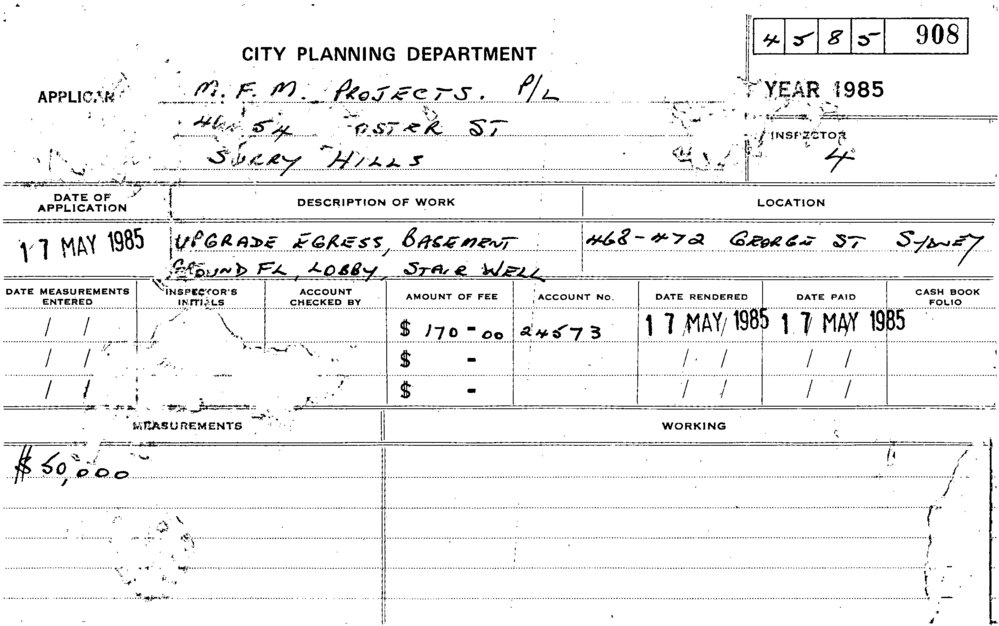 4 5 8 5 908
CITY PLANNING DEPARTMENT
APPLICANT M. F. M. PROJECTS. P/L
YEAR 1985
54 ST
INSPECTOR
SURRY HILLS
4
DATE OF APPLICATION DESCRIPTION OF WORK LOCATION
17 MAY 1985 UPGRADE EGRESS, BASEMENT 468-472 GEORGE ST SYDNEY
GROUND FL, LOBBY, STAIR WELL
DATE MEASUREMENTS ENTERED INSPECTOR'S INITIALS ACCOUNT CHECKED BY AMOUNT OF FEE ACCOUNT No. DATE RENDERED DATE PAID CASH BOOK FOLIO
/ / $ 170-00 24573 17 MAY 1985 17 MAY 1985
/ / $ - / / / /
/ / $ - / / / /
MEASUREMENTS WORKING
$ 50,000